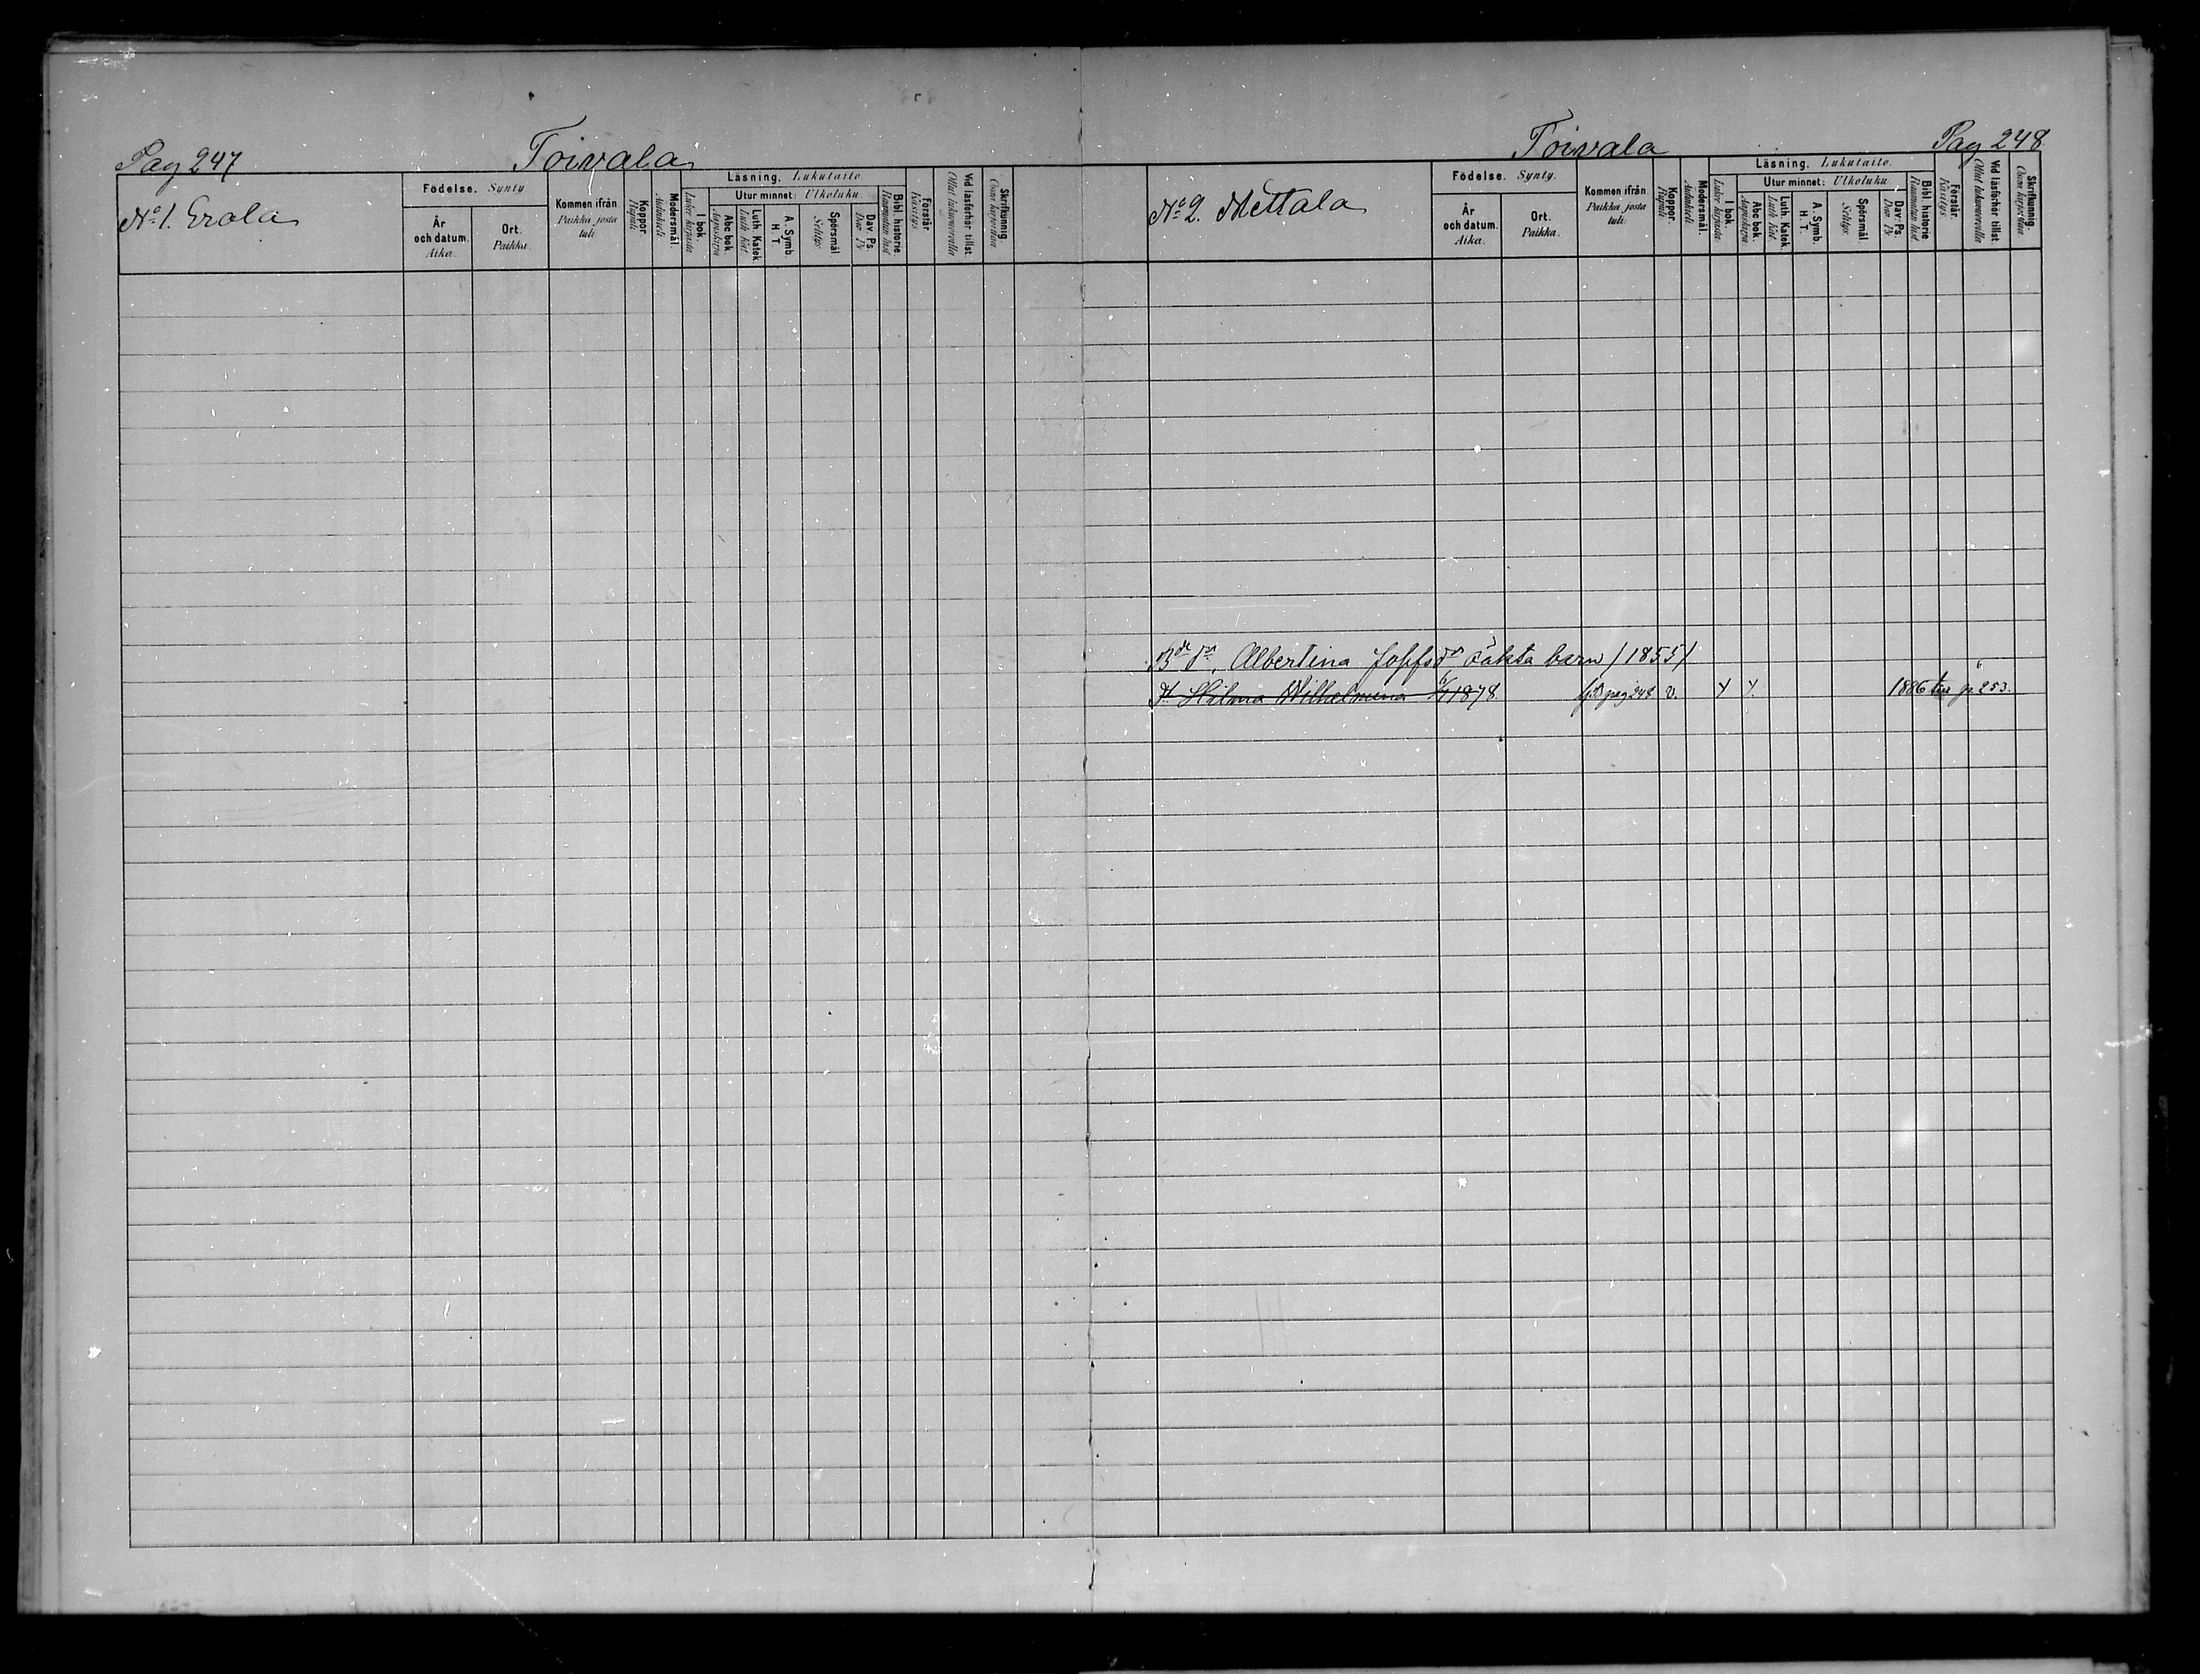 Pag 247
Toivala
No 1. Erola
Födelse. Synty
År och datum. Aika.
Ort. Paikka.
Kommen ifrån. Paikka josta tuli.
Koppor. Rupuli
Modersmål Äidinkieli
Läsning. Lukutaito
I bok. Lukee kirjasta
Utur minnet: Ulkoluku
Abc bok. Aapiskirja
Luth. Katek Luth. Kat.
A. Symb. H. T.
Spörsmål Selitys.
Dav. Ps. Dav. Ps.
Bibl. historie. Raamatun hist.
Förstår. Käsitys.
Vid läsförhör tillst. Ollut lukuluvuilla
Skrifkunnig. Osaa kirjoittaa
Toivala
Pag 248
No 2. Mettala
Födelse. Synty.
År och datum. Aika.
Ort. Paikka.
Kommen ifrån. Paikka josta tuli.
Koppor. Rupuli
Modersmål. Äidinkieli
Läsning. Lukutaito.
I bok. Lukee kirjasta.
Utur minnet: Ulkoluku
Abc bok. Aapiskirja
Luth. Katek. Luth. Kat.
A. Symb. H. T.
Spörsmål. Selitys.
Dav. Ps. Dav. Ps.
Bibl. historie Raamatun hist.
Förstår. Käsitys.
Vid läsförhör tillst.
Skrifkunnig. Osaa kirjoittaa
Albertina Josefsdr oäkta barn (1855)
Dr Hilma Wilhelmina 1878 pag 248 v. Y Y. 1886 p. 253.